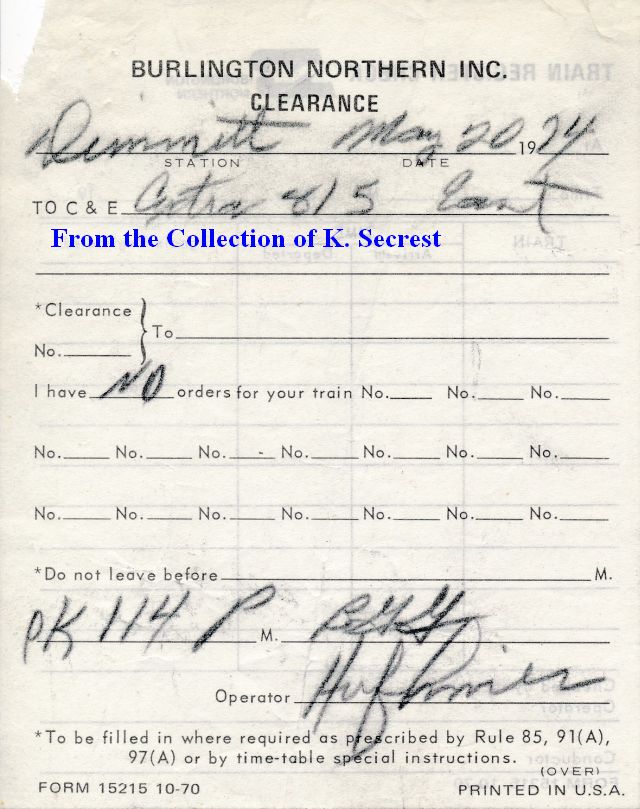 BURLINGTON NORTHERN INC.
CLEARANCE
Dimmitt May 20 1974
STATION DATE
TO C & E Extra 815 East
From the Collection of K. Secrest
*Clearance
No. To
I have NO orders for your train No. No. No.
No. No. No. No. No. No. No.
No. No. No. No. No. No. No.
*Do not leave before M.
OK 114 P M.
Operator
*To be filled in where required as prescribed by Rule 85, 91(A),
97(A) or by time-table special instructions.
(OVER)
FORM 15215 10-70 PRINTED IN U.S.A.